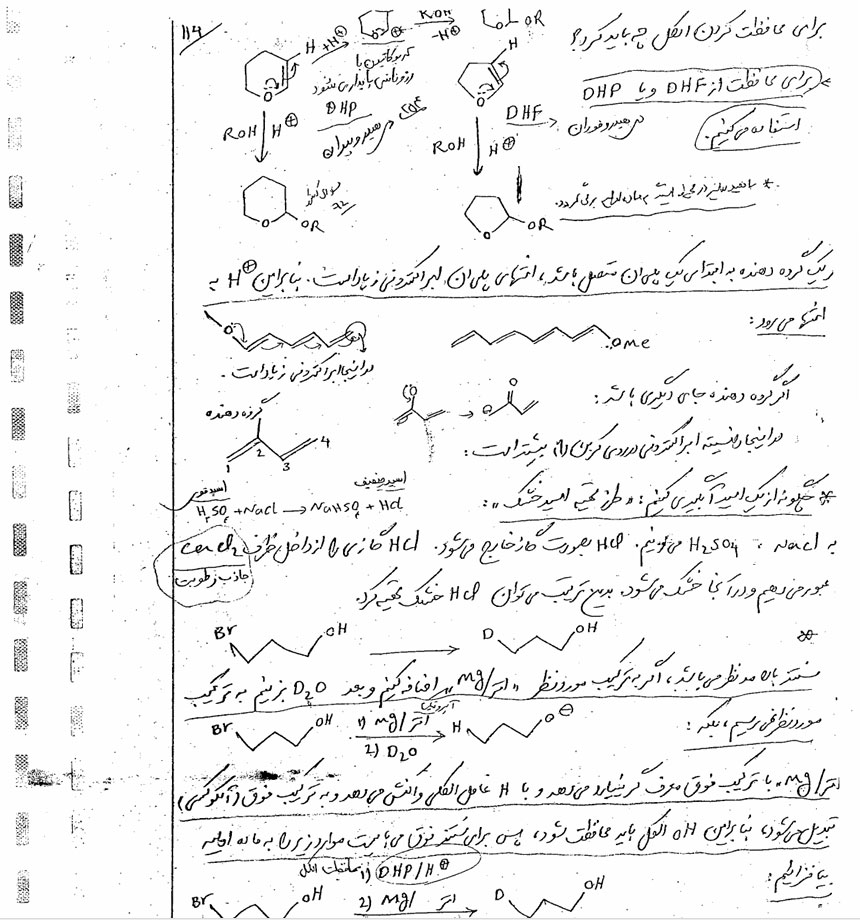 ۱۱۴
برای محافظت کردن الکل چه باید کرد؟
برای محافظت از DHF و یا DHP
استفاده می‌کنیم.
H +H⊕ ⊕ ROH -H⊕ OR
کربوکاتیون با رزونانس پایدار می‌شود
ROH H⊕ DHP دی هیدروپیران
ROH H⊕ DHF دی هیدروفوران
O OR
O OR
یک گروه دهنده به ابتدای یک پلی‌ان متصل باشد، انتهای پلی‌ان ابر الکترونی زیاد است. بنابراین H⊕ به
انتها می‌رود:
OMe
در اینجا ابر الکترونی زیاد است.
اگر گروه دهنده جای دیگری باشد:
گروه دهنده
1 2 3 4
در اینجا دانسیته ابر الکترونی در روی کربن (1) بیشتر است:
* چگونه از یک اسید آبگیری کنیم: «طرز تهیه اسید خشک»:
اسید قوی اسید ضعیف
H2SO4 + NaCl → NaHSO4 + HCl
به NaCl، H2SO4 می‌زنیم. HCl بصورت گاز خارج می‌شود. HCl گازی را از داخل ظرف CaCl2
جاذب رطوبت
عبور می‌دهیم و در آنجا خشک می‌شود. بدین ترتیب می‌توان HCl خشک تهیه کرد.
Br OH → D OH
سنتز بالا مد نظر می‌باشد، اگر به ترکیب مورد نظر «اتر/Mg» اضافه کنیم و بعد D2O بزنیم به ترکیب
مورد نظر نمی‌رسیم، بلکه:
Br OH 1) Mg/اتر 2) D2O H O⊖
اتر/Mg با ترکیب فوق معرف گرینیارد می‌دهد و با H عامل الکلی واکنش می‌دهد و به ترکیب فوق (آلکوکسی)
تبدیل می‌شود، بنابراین OH الکل باید محافظت شود، پس برای سنتز فوق می‌بایست موارد زیر را به ماده اولیه
بیافزاییم:
محافظت الکل 1) DHP/H⊕
Br OH 2) Mg/ اتر D OH